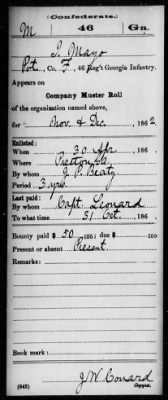 (Confederate.)
M 46 Ga.
I. Mayo
Pvt., Co. F, 46 Reg't Georgia Infantry.
Appears on
Company Muster Roll
of the organization named above,
for Nov & Dec, 1862.
Enlisted:
When 30 Apr, 186
Where Preston Ga.
By whom J. P. Beaty
Period 3 yrs.
Last paid:
By whom Capt. Leonard
To what time 31 Oct, 186
Bounty paid $ 50 /100; due $ /100
Present or absent Present.
Remarks:
Book mark:
(642) J. W. Conard
Copyist.